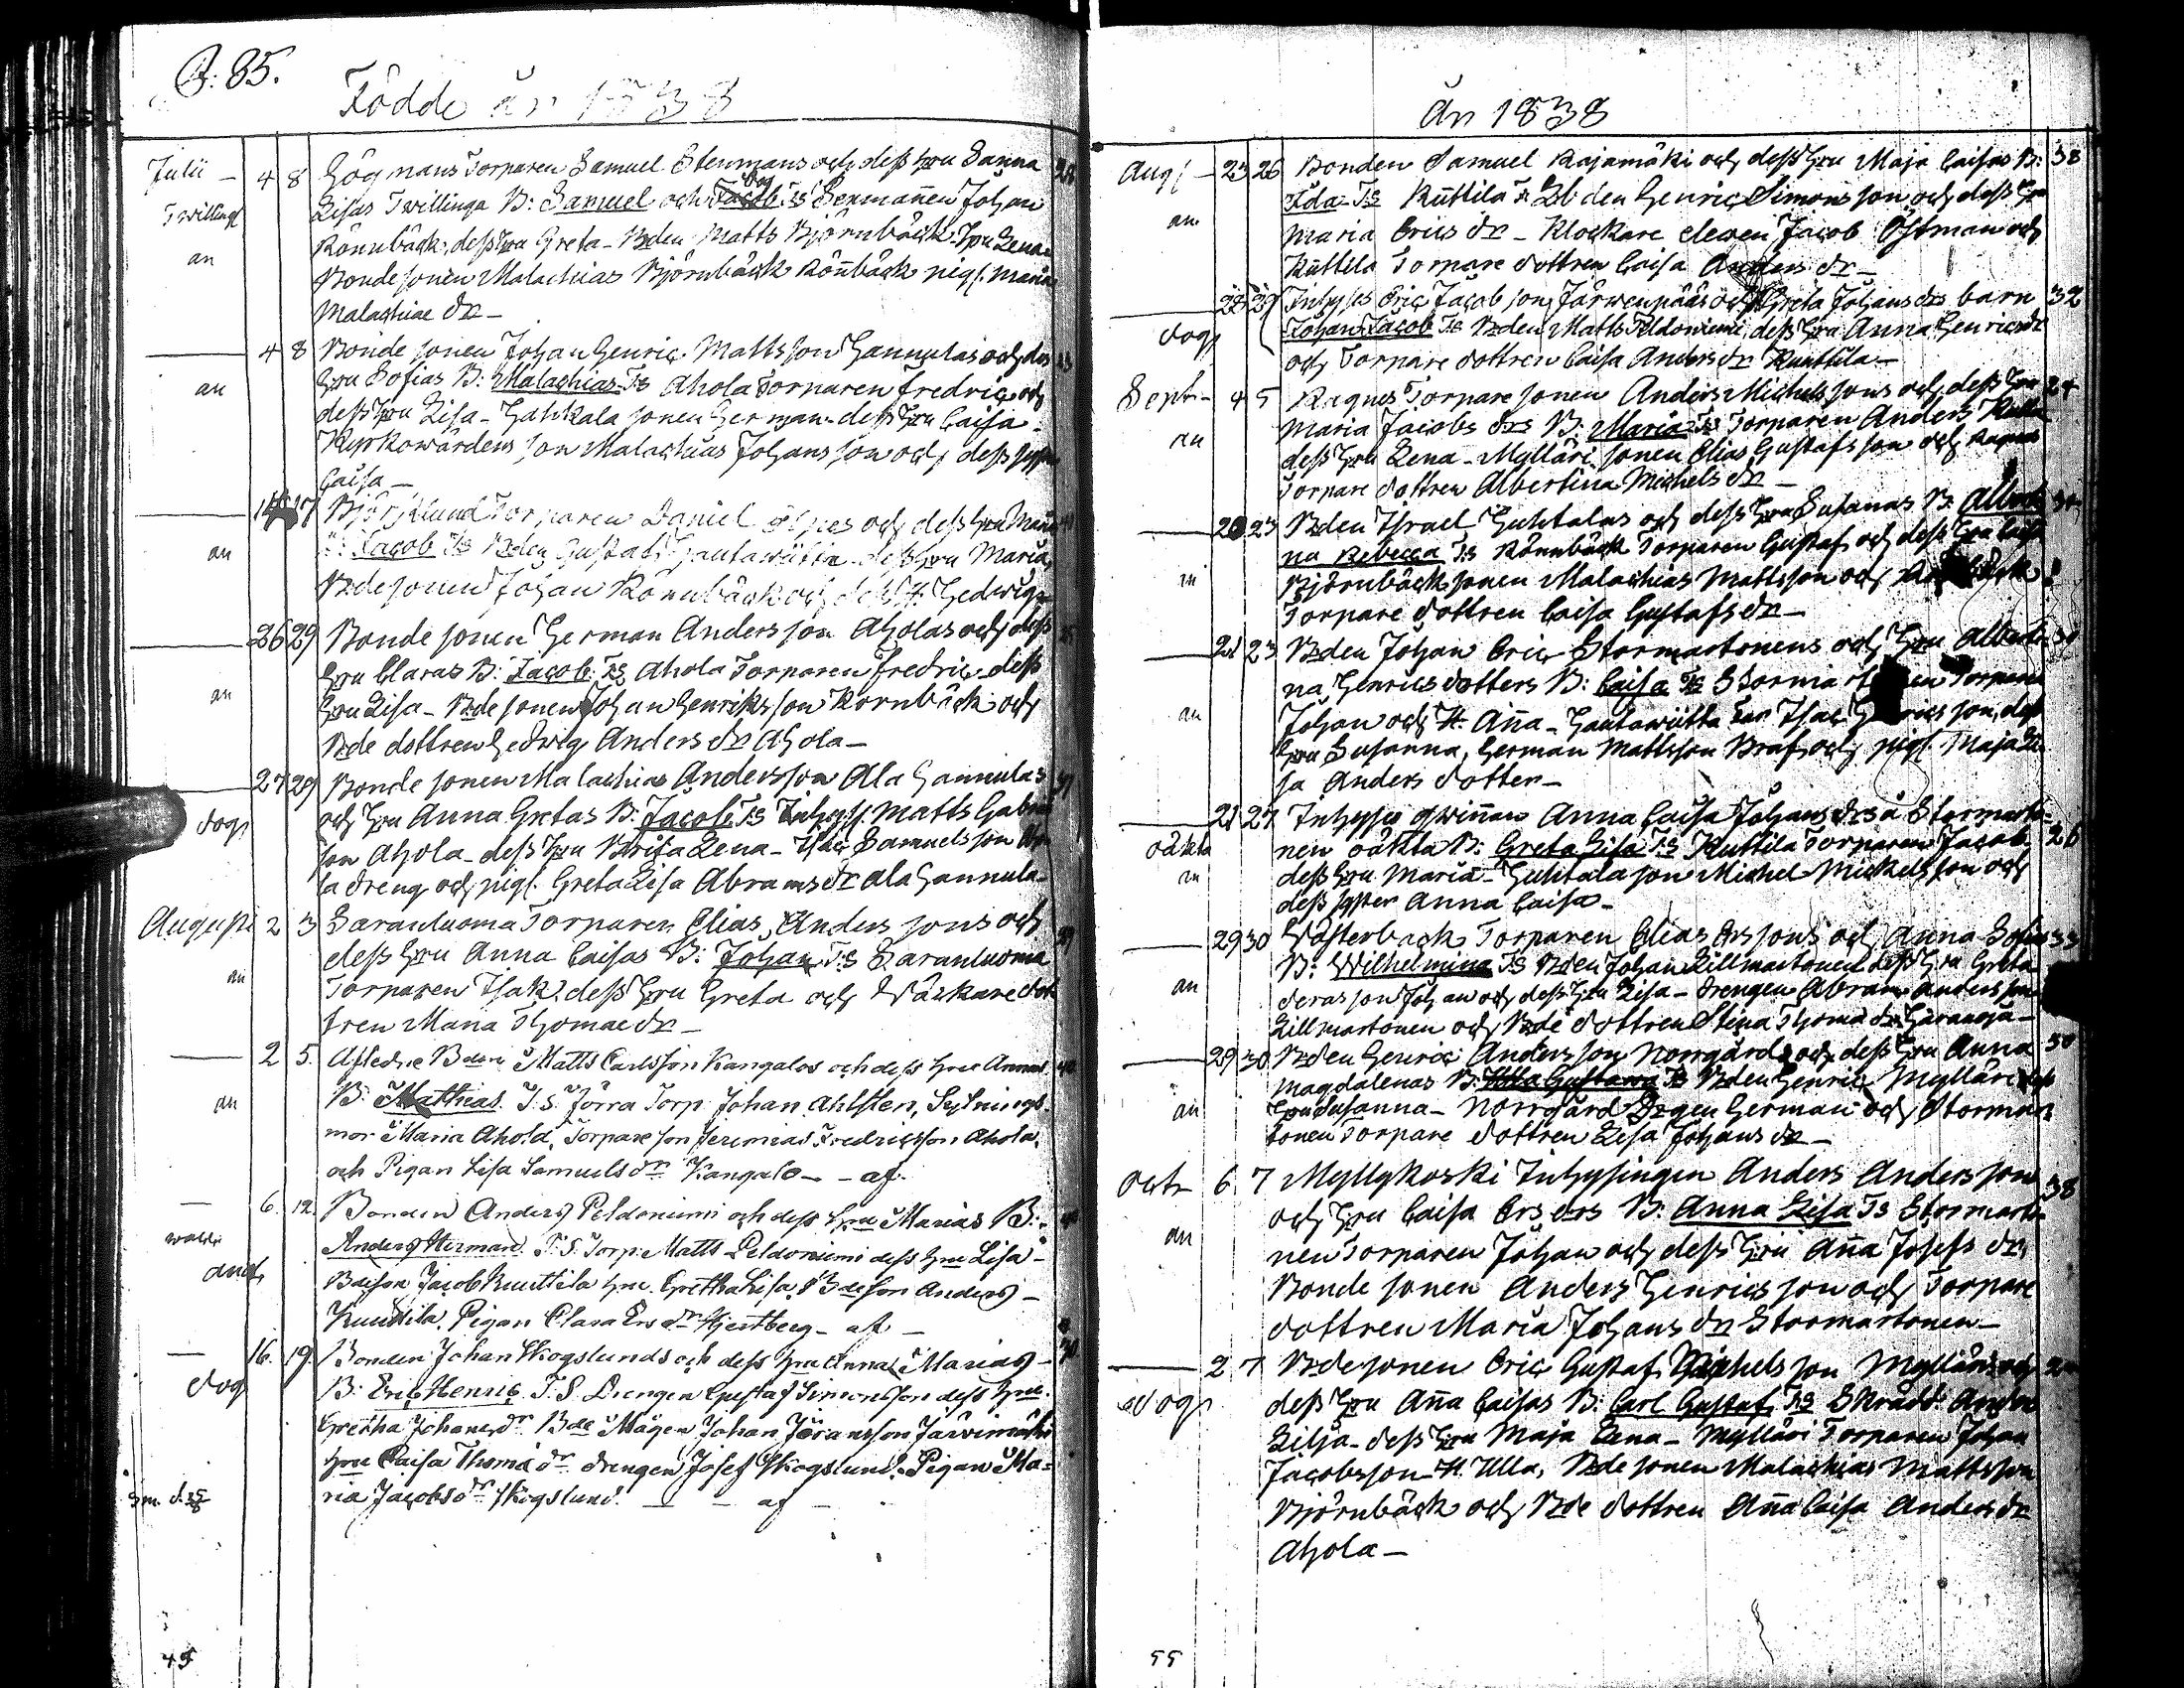 P: 85.
Födde år 1838
Julii - 4 8 Högnäns Torparen Samuel Stenmans och dess hru Sanna 28
Twillingf Lisas Twillinga B: Samuel och Jacob Ts Sexmannen Johan
an Rönnbäck, dess hru Greta - Bden Matts Björnbäck hru Lena
Bonde sonen Malachias Björnbäck Rönnbäck pig. Maria
Malachiæ dr -
4 8 Bonde sonen Johan Henric Mattsson Hannulas och des
an hru Sofias B: Malachias Ts Ahola Torparen Fredric och
dess hru Lisa - Hahkala sonen Herman dess hru Caisa -
Kyrkowärdens son Malachias Johansson och dess syster
Caisa -
14 17 Björklund Torparen Daniel och dess hru Maria
an B: Jacob Ts Bden Gustaf Hautawiitta dess hru Maria,
Bde sonen Johan Rönnbäck och dess H. Hedwig
26 29 Bonde sonen Herman Andersson Aholas och dess
hru Claras B: Jacob Ts Ahola Torparen Fredric dess
an hru Lisa - Bde sonen Johan Henriksson Rönnbäck och
Bde dottren Hedwig Anders dr Ahola -
27 29 Bonde sonen Malachias Andersson Ala Hannulas
dog och hru Anna Gretas B: Jacob Ts Inhyss. Matts Gabriel
son Ahola - dess hru Brita Lena - Isac Samuelsson
la dreng och pig. Greta Lisa Abrams dr Ala Hannula -
Augusti 2 3 Saranluoma Torparen Elias Anders sons och
an dess hru Anna Caisas B: Johan Ts Saranluoma
Torparen Isak dess hru Greta och Wäskare dot
tren Maria Thomæ dr -
2 5. Aftedne Bden Matts Carlsson Kangalas och dess hru Annas
an B: Matthias. T.S. Jorra Torp. Johan Ahlsten, Sytnings
mor Maria Ahola, Torpare son Jeremias Fredricsson Ahola,
och Pigan Lisa Samuels dr Kangalo - - af.
6. 12. Bonden Anders Peldoniemi och dess hru Marias B:
Anders Herman. T.S. Torp. Matts Peldoniemi dess hru Lisa -
Bdeson Jacob Kuuttila hru Gretha Lisa, Bdeson Anders -
Kuuttila. Pigan Clara Ers dr Hjertberg - af -
16. 19. Bonden Johan Skogslunds och dess hru Anna Marias - 30
dog B: Eric Henric T.S. Drengen Gustaf Simonsson dess hru
Gretha Johans dr Bde Mågen Johan Göransson Järvimäki
hru Caisa Thomæ dr drengen Josef Skogslund. Pigan Ma=
ria Jacobs dr Skogslund. - - af -
45
År 1838
Aug - 23 26 Bonden Samuel Rajamäki och dess hru Maja Caisas B: 38
an Ida - Ts Kuttila Bden Henric Simons son och dess hru
Maria Erics dr - Klockare eleven Jacob Östman och
Kuttila Torpare dottren Caisa Anders dr -
28 29 Inhyses Eric Jacobson Järwenpääs och Greta Johans drs barn 32
dog Johan Jacob Ts Bden Matts Peldoniemi, dess hru Anna Henrics dr
och Torpare dottren Caisa Anders dr Kuuttila -
Septr - 4 5 Ragnes Torpare sonen Anders Michels sons och dess hru 24
an Maria Jacobs drs B: Maria Ts Torparen Anders
dess hru Lena - Mylläri sonen Elias Gustafs son och Ragnes
Torpare dottren Albertina Michels dr -
20 23 Bden Israel Huhtalas och dess hru Susanas B: Alberti 34
an na Rebecca Ts Rönnbäck Torparen Gustaf och dess hru Caisa
Björnbäck sonen Malachias Mattsson och
Torpare dottren Caisa Gustafs dr -
21 23 Bden Johan Eric Stormartonens och hru Alberti 30
an na Henrics dotters B: Caisa Ts Torparen
Johan och H. Aña - Hautawiitta Isac Henrics son, dess
hru Susanna, Herman Mattsson Braf och pig. Maja Li
sa Anders dotter -
21 27 Inhyses qwinnan Anna Caisa Johans drs å Stormarto=
oäkta nen oäkta B: Greta Lisa Ts Kuttila Torparen Jacob 26
an dess hru Maria - Huhtala son Michel Mickelsson och
dess syster Anna Caisa -
29 30 Wästerback Torparen Elias Ers sons och Anna Sofias 33
an B: Wilhelmina Ts Bden Johan Lillmartonen dess hru Greta
deras son Johan och dess hru Lisa - drengen Abram Anderssson
Lillmartonen och Bde dottren Stina Thomæ dr Haranoja -
29 30 Bden Henric Andersson Norrgårds och dess hru Anna 30
an Magdalenas B: Ulla Gustawa Ts Bden Henric Mylläri dess
hru Susanna - Norrgård Drgen Herman och Stormar
tonen Torpare dottren Lisa Johans dr -
Octr 6 7 Myllykoski Inhysingen Anders Andersson
an och hru Caisa Ers drs B: Anna Lisa Ts Stormarto 38
nen Torparen Johan och dess hru Aña Josefs dr,
Bonde sonen Anders Henricsson och Torpare
dottren Maria Johans dr Stormartonen -
2 7 Bde sonen Eric Gustaf Michelsson Mylläris och
dog dess hru Aña Caisas B: Carl Gustaf, Ts Skrädd. Anders
Lilja - dess hru Maja Lena - Mylläri Torparen Johan
Jacobsson - H. Ulla, Bde sonen Malachias Mattsson
Björnbäck och Bde dottren Aña Caisa Anders dr
Ahola -
55